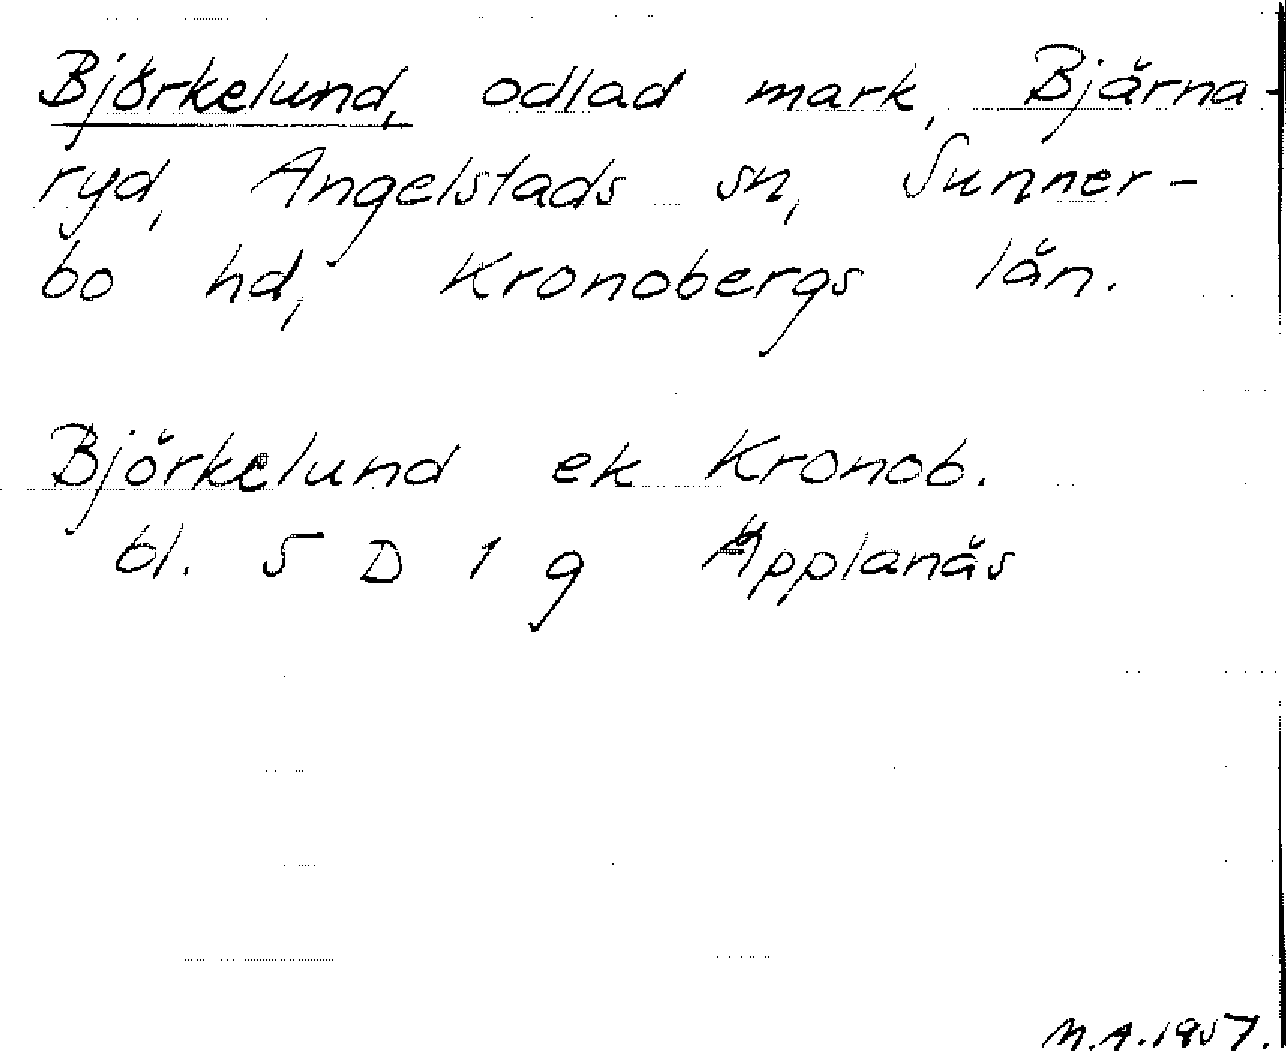 Björkelund, odlad mark, Bjärna-
ryd, Angelstads sn, Sunner-
bo hd, Kronobergs län.
Björkelund ek Kronob.
bl. 5 D 1 g Äpplanäs
M.A. 1957.